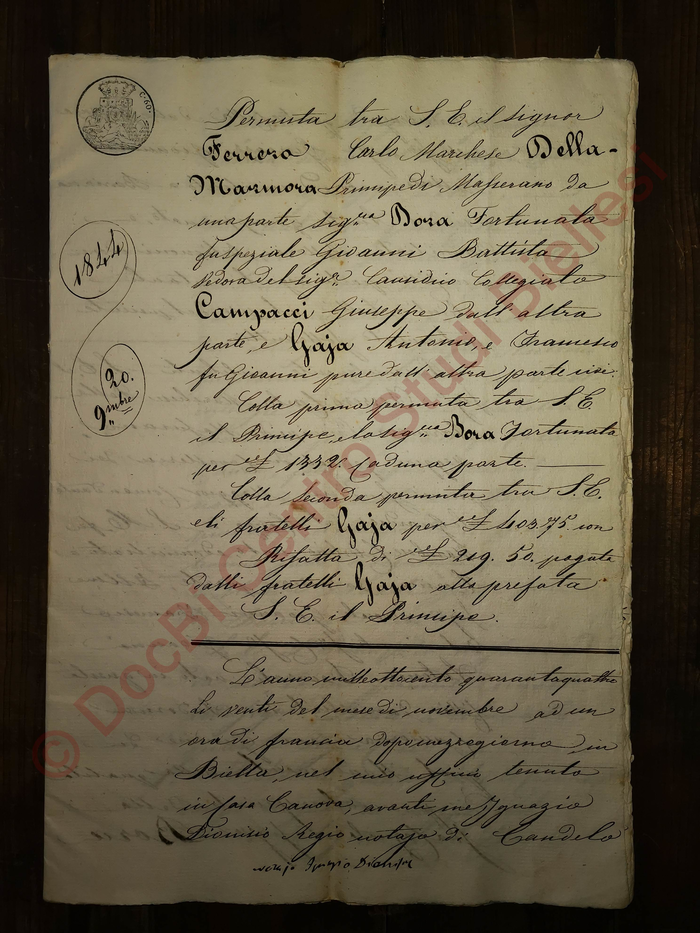 C. 60.
1844
20.
9mbre
Permuta tra S. E. il signor
Ferrero Carlo Marchese Della-
Marmora Principe di Masserano da
una parte sig.ra Bora Fortunata
fu speziale Gioanni Battista
vedova del sig.r Causidico Collegiato
Campacci Giuseppe dall'altra
parte, e Gaja Antonio, e Francesco
fu Gioanni pure dall'altra parte cioè:
Colla prima permuta tra S. E.
il Principe, e la sig.ra Bora Fortunata
per £ 1332 caduna parte.
Colla seconda permuta tra S. E.
e li fratelli Gaja per £ 403.75 con
Rifatta di £ 219. 50. pagate
dalli fratelli Gaja alla prefata
S. E. il Principe.
L'anno milleottocento quarantaquattro
li venti del mese di novembre ad un
ora di francia dopo mezzogiorno, in
Biella, nel mio uffizio tenuto
in casa Canova, avanti me Ignazio
Dionisio Regio notajo di Candelo
notajo Ignazio Dionisio
© DocBi Centro Studi Biellesi